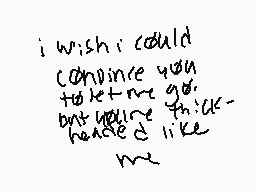 i wish i could
convince you
to let me go.
but you're thick-
headed like
me